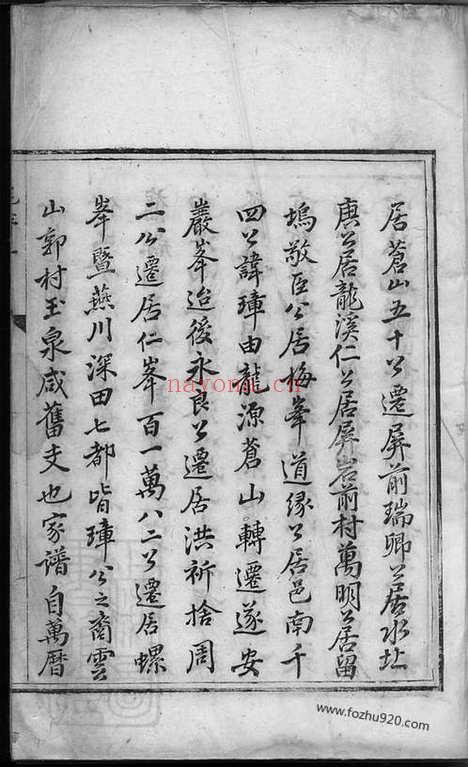 居蒼山五十公遷屏前瑞卿公居水址
唐公居龍溪仁公居屏岩前村萬明公居留
塢敬臣公居梅峯道緣公居邑南千
四公諱璋由龍源蒼山轉遷遂安
巖峯迨後永良公遷居洪祈捨周
二公遷居仁峯百一萬八二公遷居螺
峯暨燕川深田七都皆璋公之裔雲
山郭村玉泉咸舊支也家譜自萬曆
nayona.cn
www.fozhu920.com